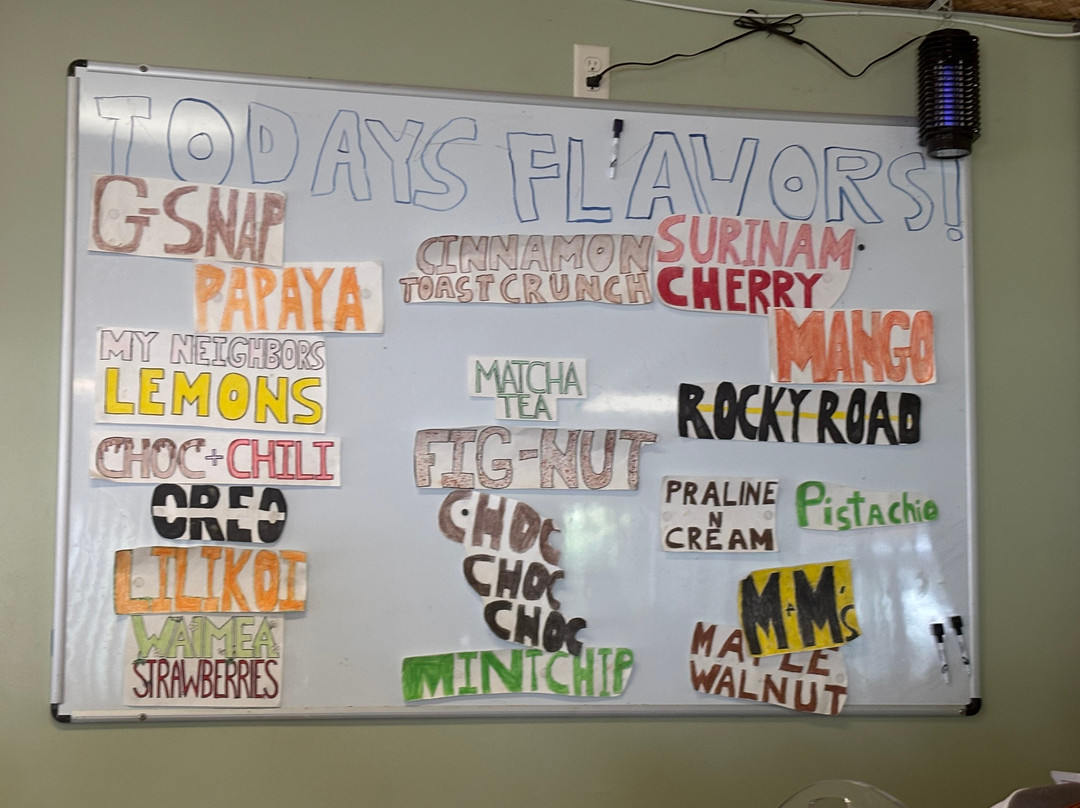 TODAYS FLAVORS!
G-SNAP
PAPAYA
MY NEIGHBORS
LEMONS
CHOC + CHILI
OREO
LILIKOI
WAIMEA
STRAWBERRIES
CINNAMON
TOAST CRUNCH
MATCHA
TEA
FIG-NUT
CHOC
CHOC
CHOC
MINT CHIP
SURINAM
CHERRY
MANGO
ROCKY ROAD
PRALINE
N
CREAM
Pistachio
M+M's
MAPLE
WALNUT